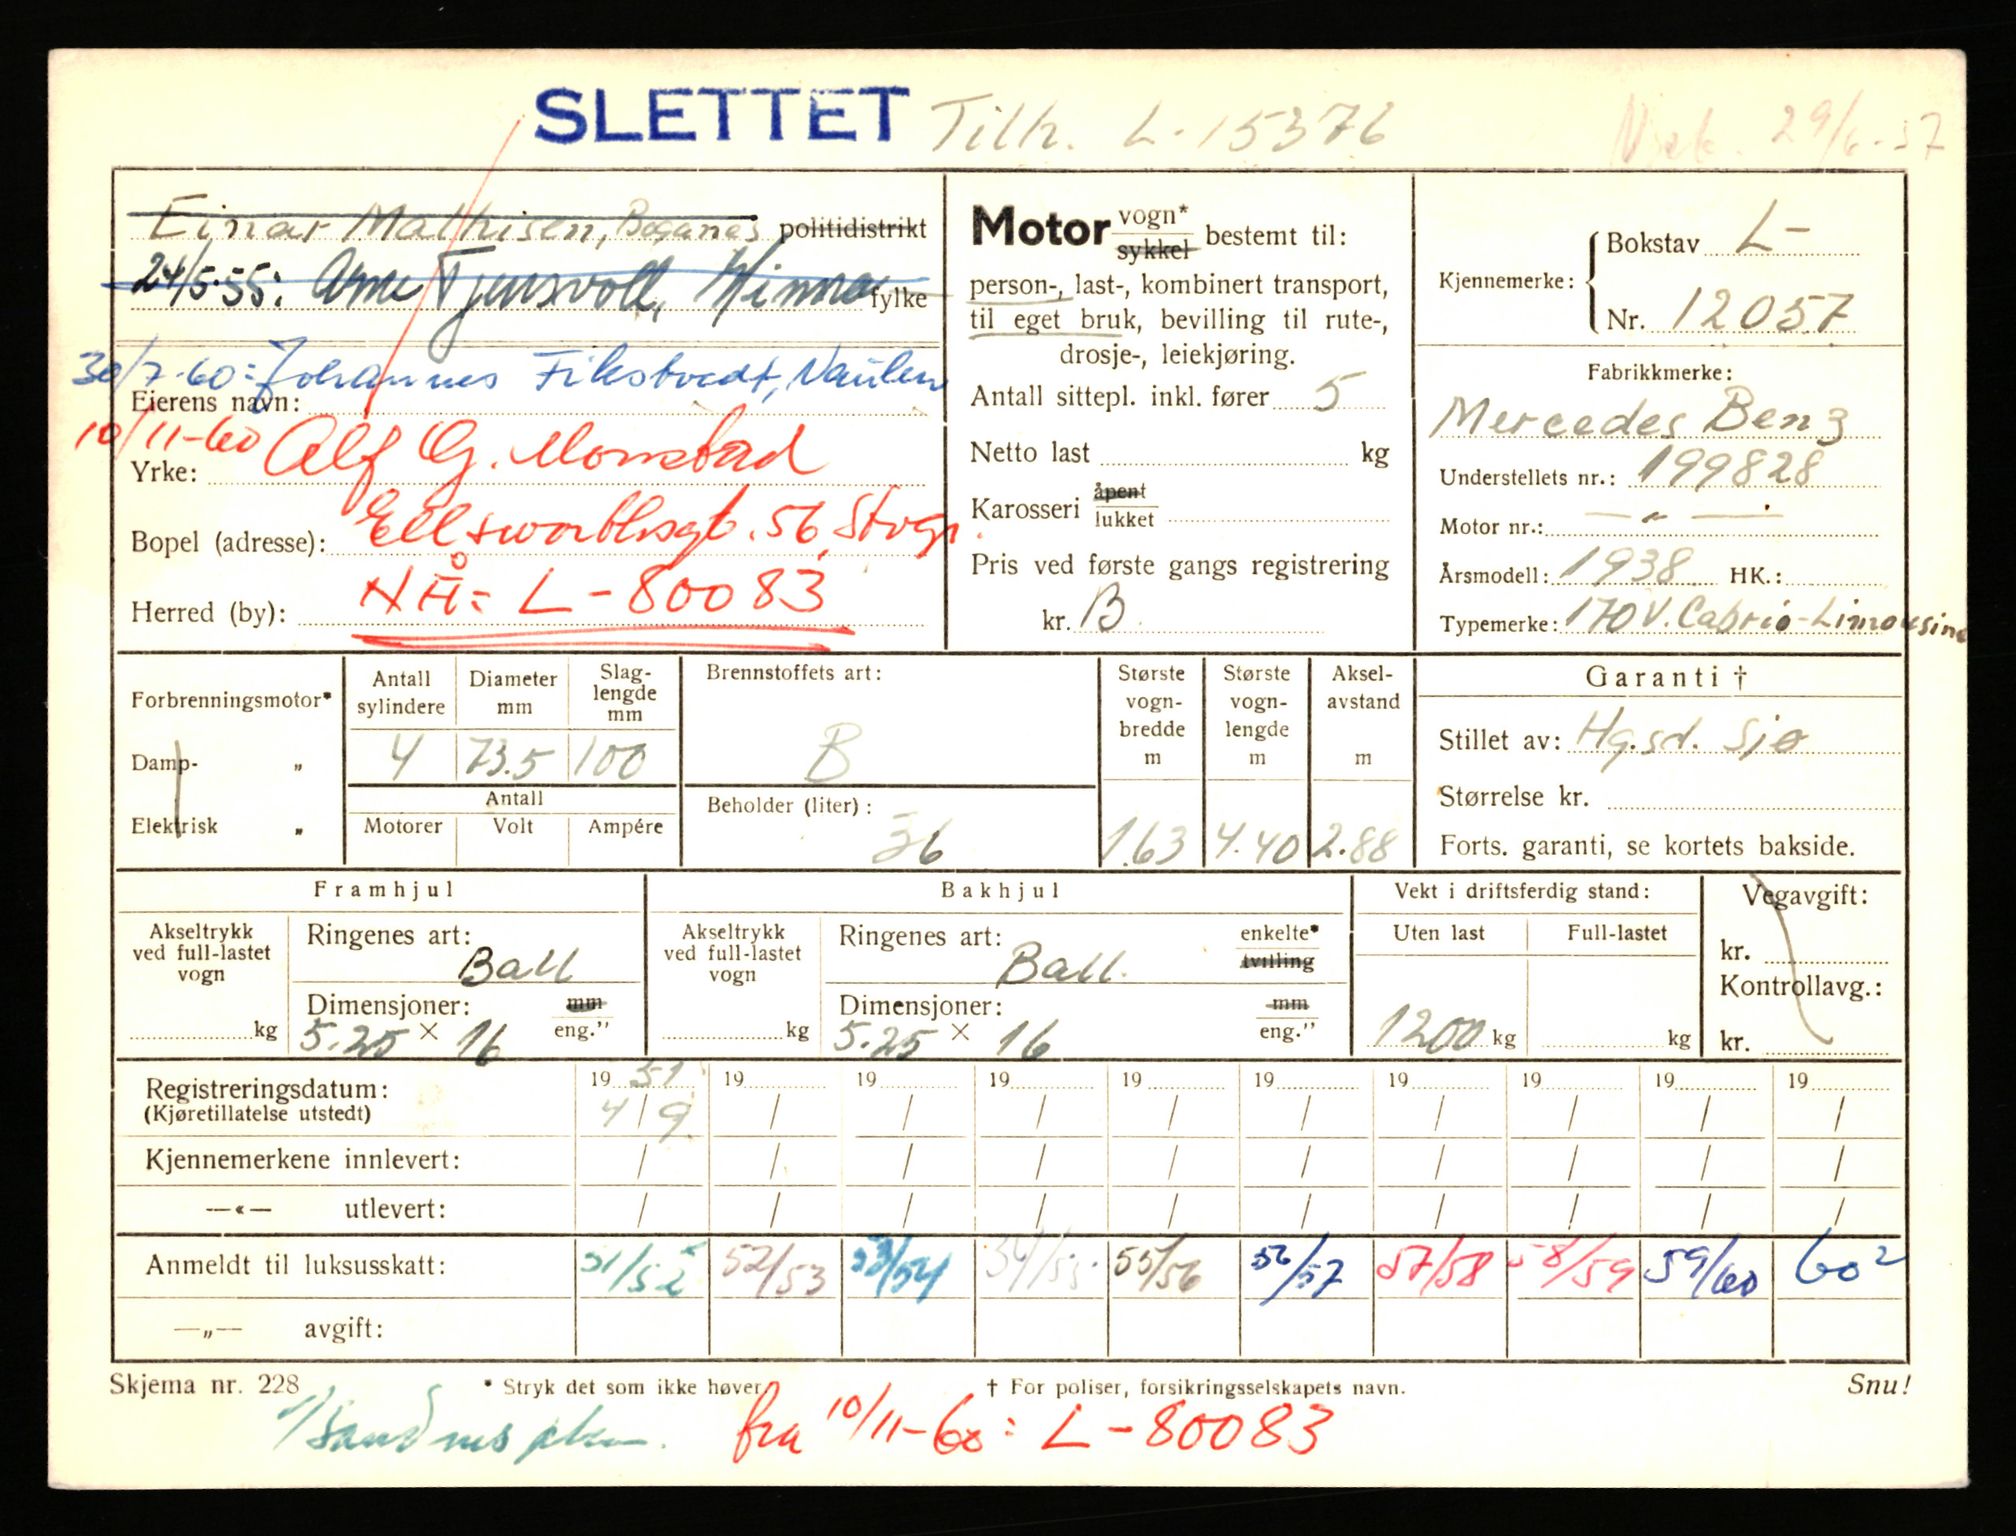 SLETTET Tilh. L-15376 29/6-57
Einar Mathisen, Boganes politidistrikt
24/5-55: Arne Tjensvoll, Hinna fylke
30/7-60: Johannes Fikstvedt, Vaulen
Eierens navn:
10/11-60 Alf G. Monstad
Yrke:
Ellsworthsgt. 56, Stvgr.
Bopel (adresse):
NÅ: L-80083
Herred (by):
Motor vogn* sykkel bestemt til:
person-, last-, kombinert transport,
til eget bruk, bevilling til rute-,
drosje-, leiekjøring.
Antall sittepl. inkl. fører 5
Netto last kg
Karosseri åpent lukket
Pris ved første gangs registrering
kr. B
Kjennemerke: Bokstav L-
Nr. 12057
Fabrikkmerke:
Mercedes Benz
Understellets nr.: 199828
Motor nr.: — " —
Årsmodell: 1938 HK.:
Typemerke: 170 V. Cabrio-Limousine
Forbrenningsmotor*
Damp- „
Elektrisk „
Antall sylindere 4
Diameter mm 73.5
Slag-lengde mm 100
Antall
Motorer Volt Ampére
Brennstoffets art:
B
Beholder (liter):
36
Største vogn-bredde m 1.63
Største vogn-lengde m 4.40
Aksel-avstand m 2.88
Garanti †
Stillet av: Hg.sd. Sjø
Størrelse kr.
Forts. garanti, se kortets bakside.
Framhjul
Akseltrykk ved full-lastet vogn
kg
Ringenes art:
Ball
Dimensjoner: mm
5.25 × 16 eng."
Bakhjul
Akseltrykk ved full-lastet vogn
kg
Ringenes art: enkelte*
Ball. tvilling
Dimensjoner: mm
5.25 × 16 eng."
Vekt i driftsferdig stand:
Uten last Full-lastet
1200 kg kg
Vegavgift:
kr.
Kontrollavg.:
kr.
Registreringsdatum: 19 51 19 19 19 19 19 19 19 19 19
(Kjøretillatelse utstedt) 4/9 / / / / / / / / /
Kjennemerkene innlevert: / / / / / / / / / /
—«— utlevert: / / / / / / / / / /
Anmeldt til luksusskatt: 51/52 52/53 53/54 54/55 55/56 56/57 57/58 58/59 59/60 60²
—„— avgift:
Skjema nr. 228 * Stryk det som ikke høver. † For poliser, forsikringsselskapets navn. Snu!
fra 10/11-60: L-80083